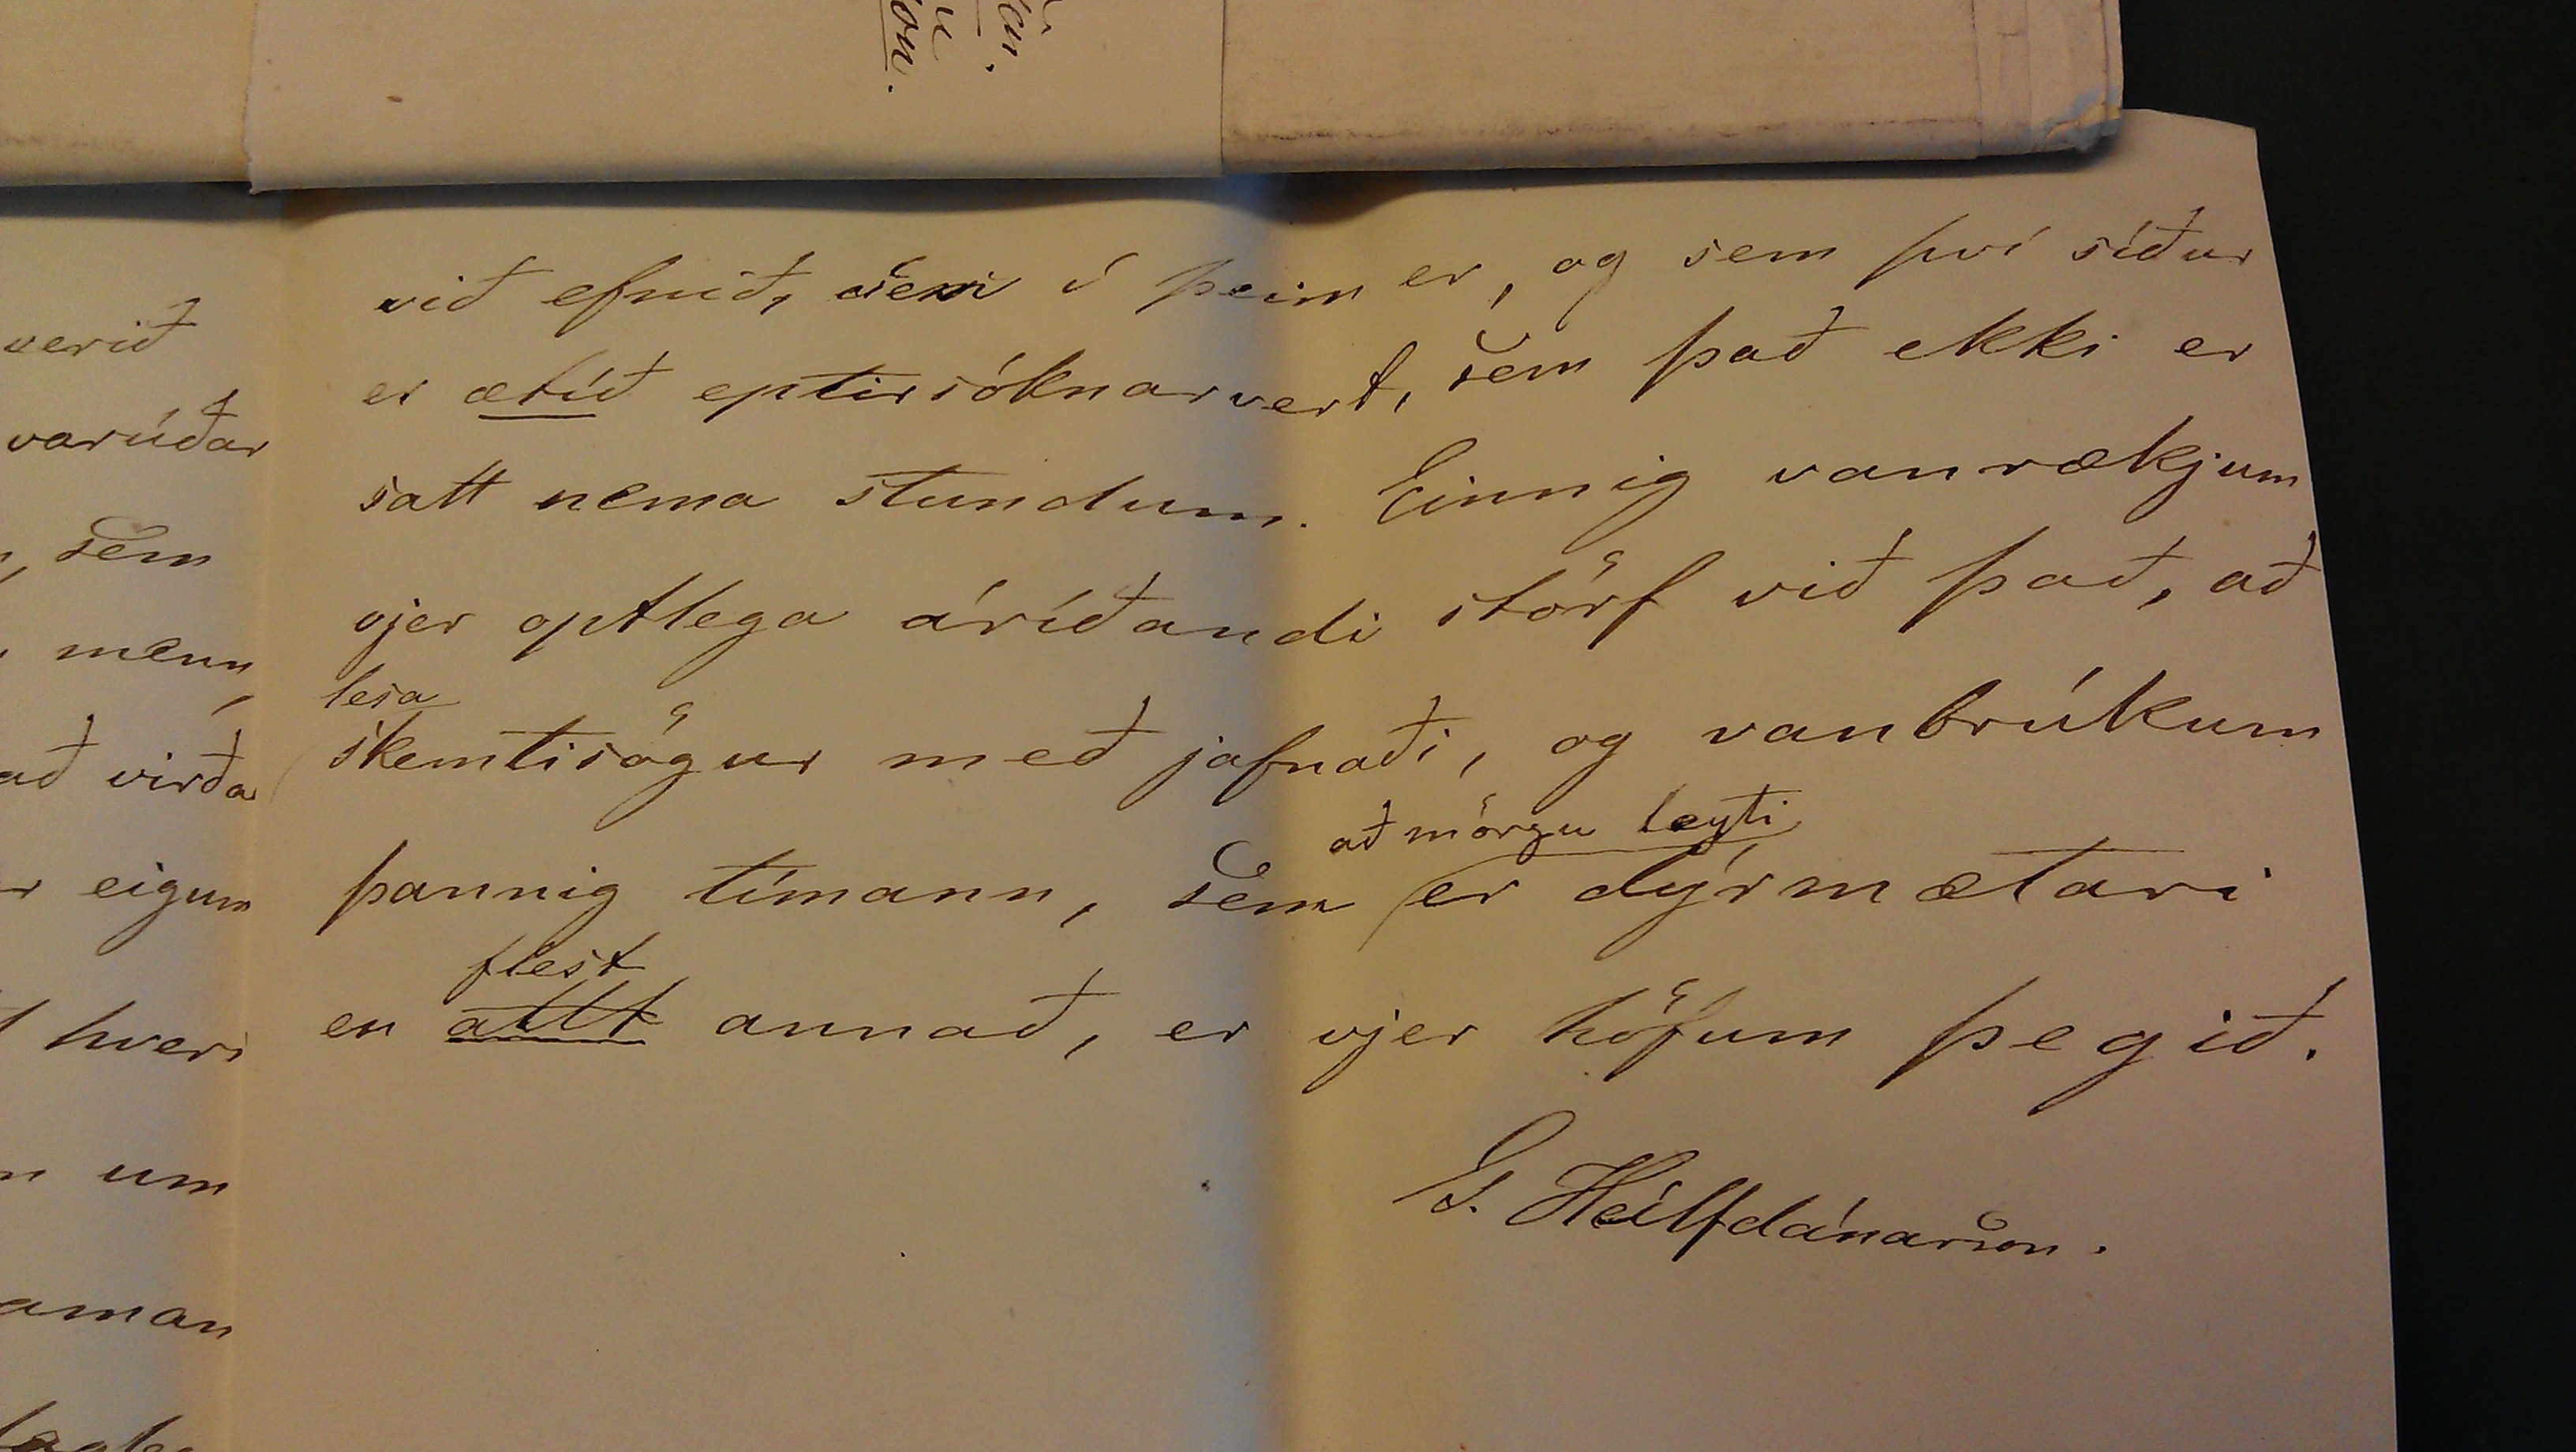 án.
on.
verið
varúðar
sem
menn,
að virða
eigum
hvers
um
við efnið, sem í þeim er, og sem því síður
er ætíð eptirsóknarvert, sem það ekki er
satt nema stundum. Einnig vanrækjum
vjer optlega áríðandi störf við það, að
lesa
skemtisögur með jafnaði, og vanbrúkum
að mörgu leyti
þannig tímann, sem er dýrmætari
flest
en allt annað, er vjer höfum þegið.
G. Hálfdánarson.